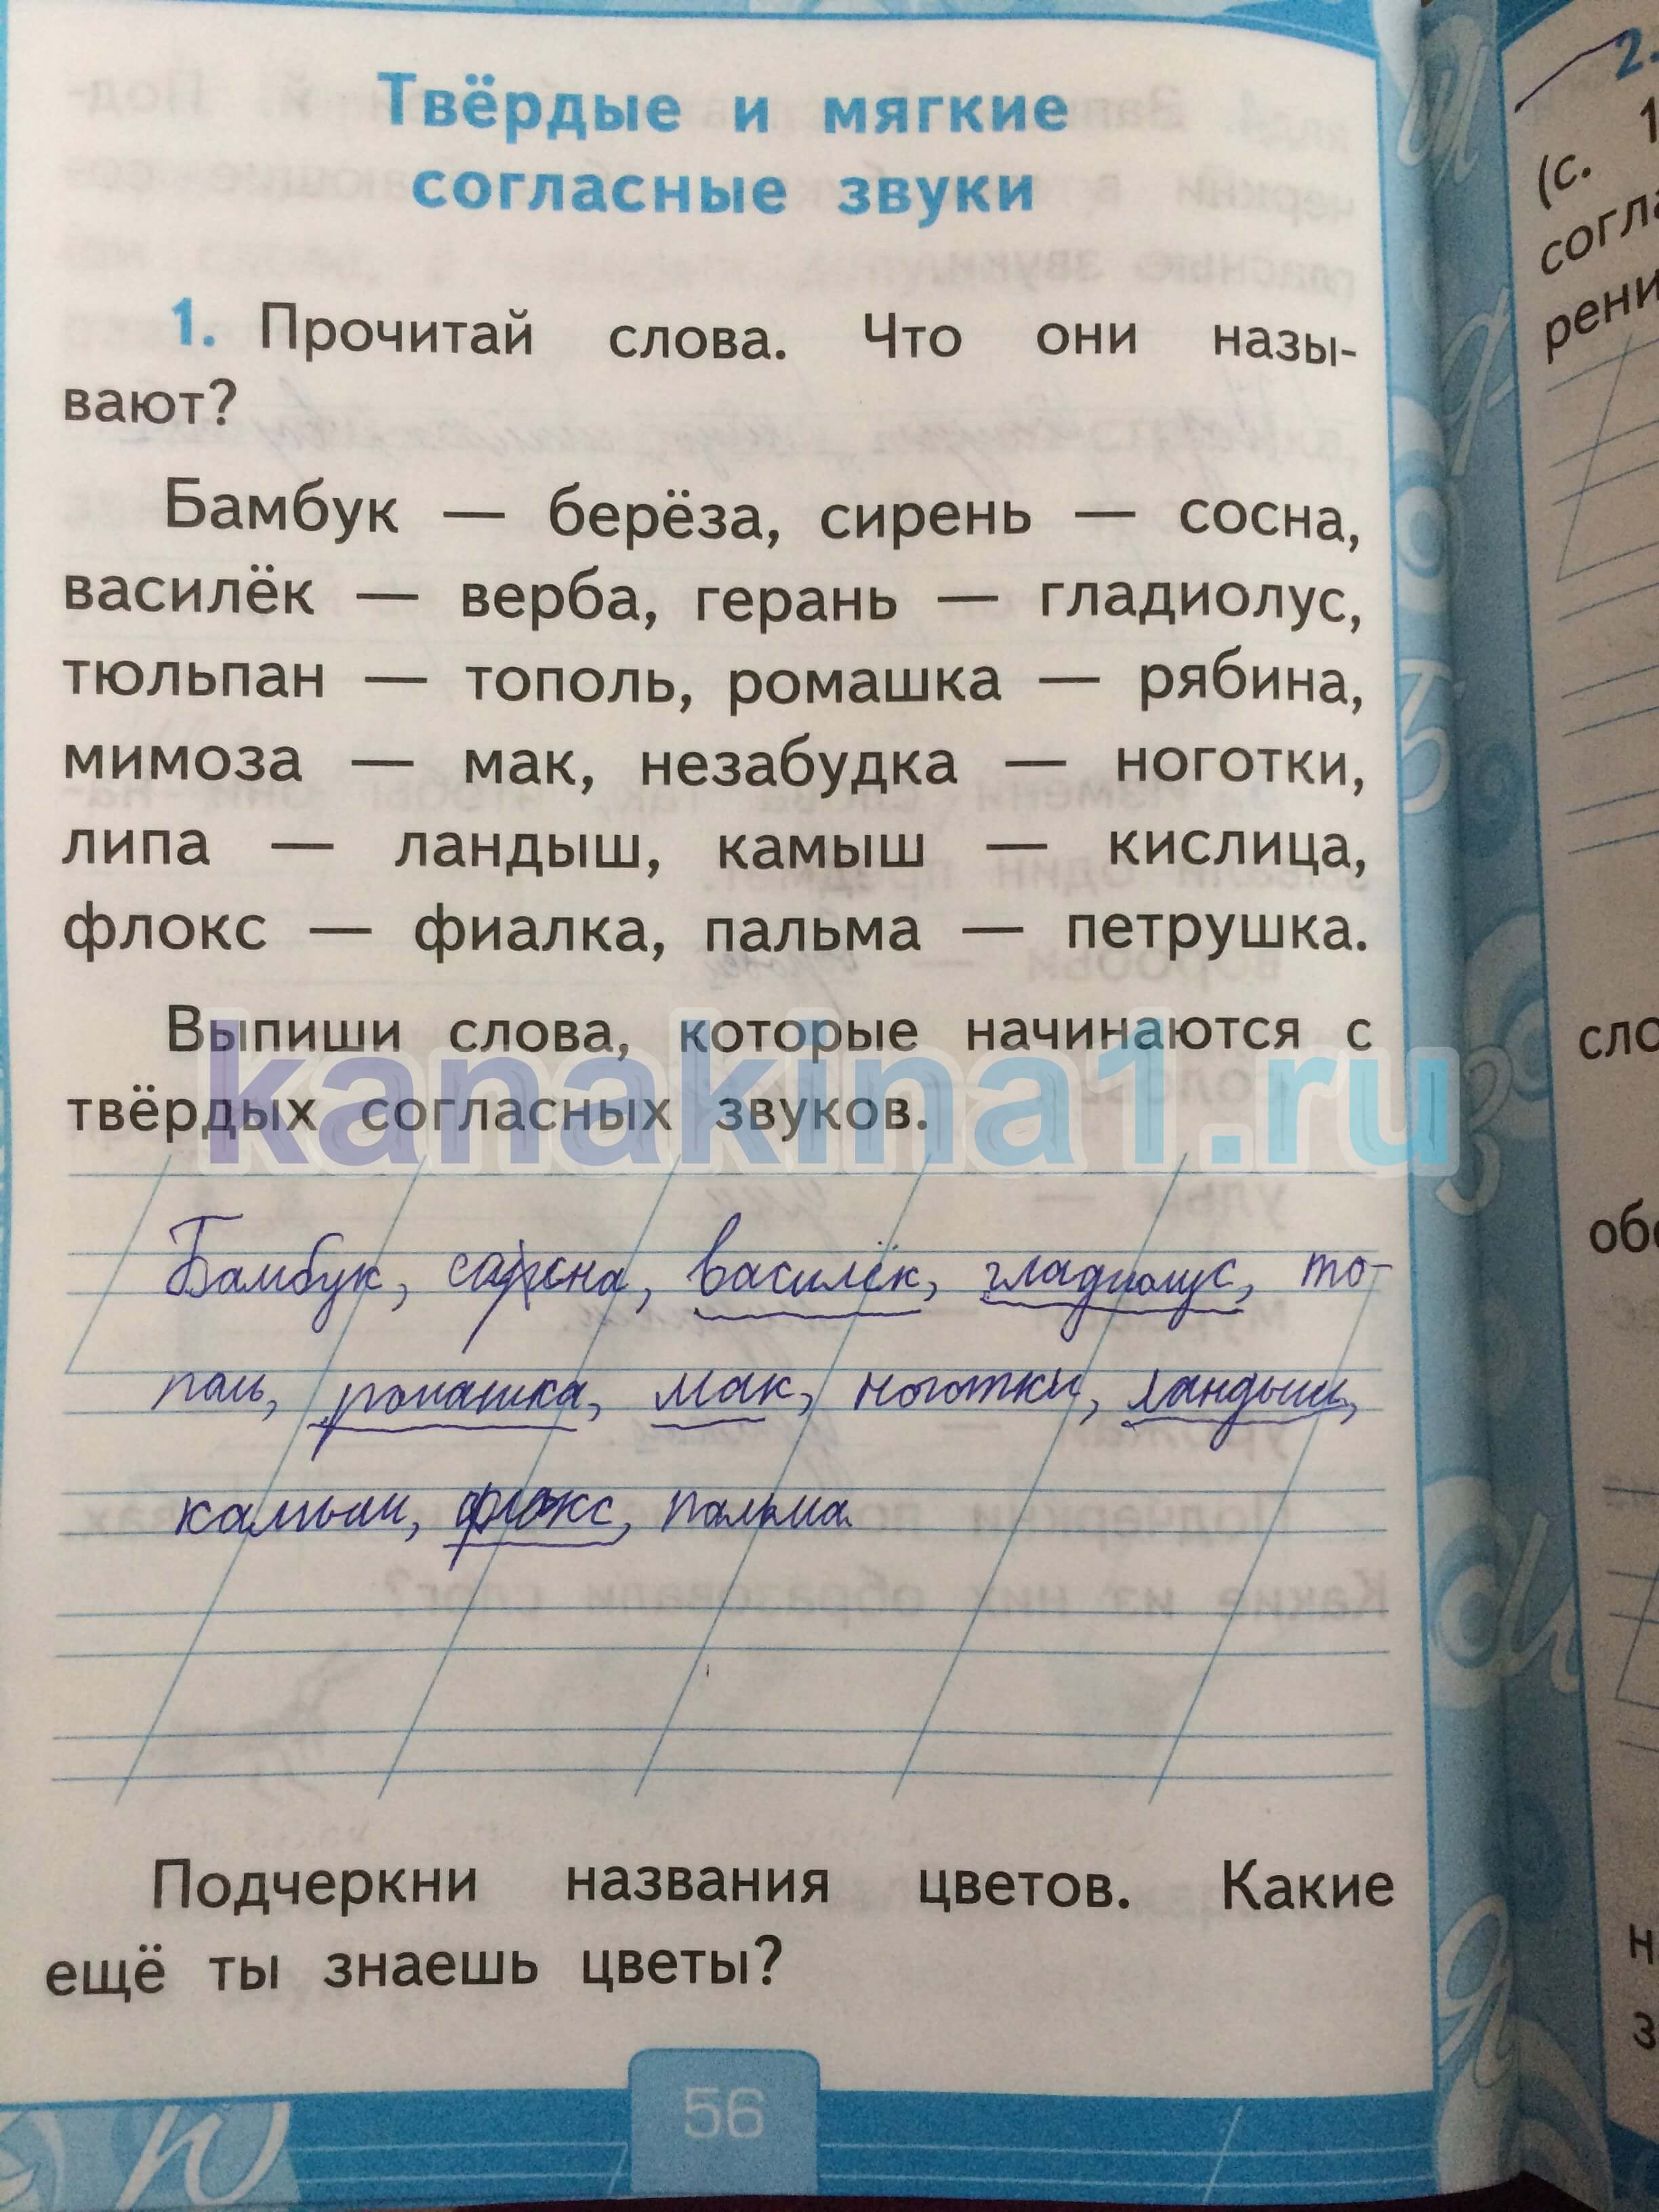 Твёрдые и мягкие
согласные звуки
1. Прочитай слова. Что они назы-
вают?
Бамбук — берёза, сирень — сосна,
василёк — верба, герань — гладиолус,
тюльпан — тополь, ромашка — рябина,
мимоза — мак, незабудка — ноготки,
липа — ландыш, камыш — кислица,
флокс — фиалка, пальма — петрушка.
Выпиши слова, которые начинаются с
твёрдых согласных звуков.
kanakina1.ru
Бамбук, сосна, василёк, гладиолус, то-
поль, ромашка, мак, ноготки, ландыш,
камыш, флокс, пальма.
Подчеркни названия цветов. Какие
ещё ты знаешь цветы?
56
2.
(с. 1